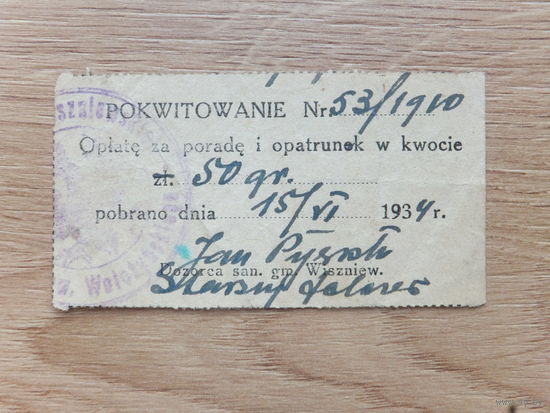 POKWITOWANIE Nr. 53/1910
Opłatę za poradę i opatrunek w kwocie
zł. 50 gr.
pobrano dnia 15/VI 1934 r.
Jan
Dozorca san. gm. Wiszniew.
Starszy felczer